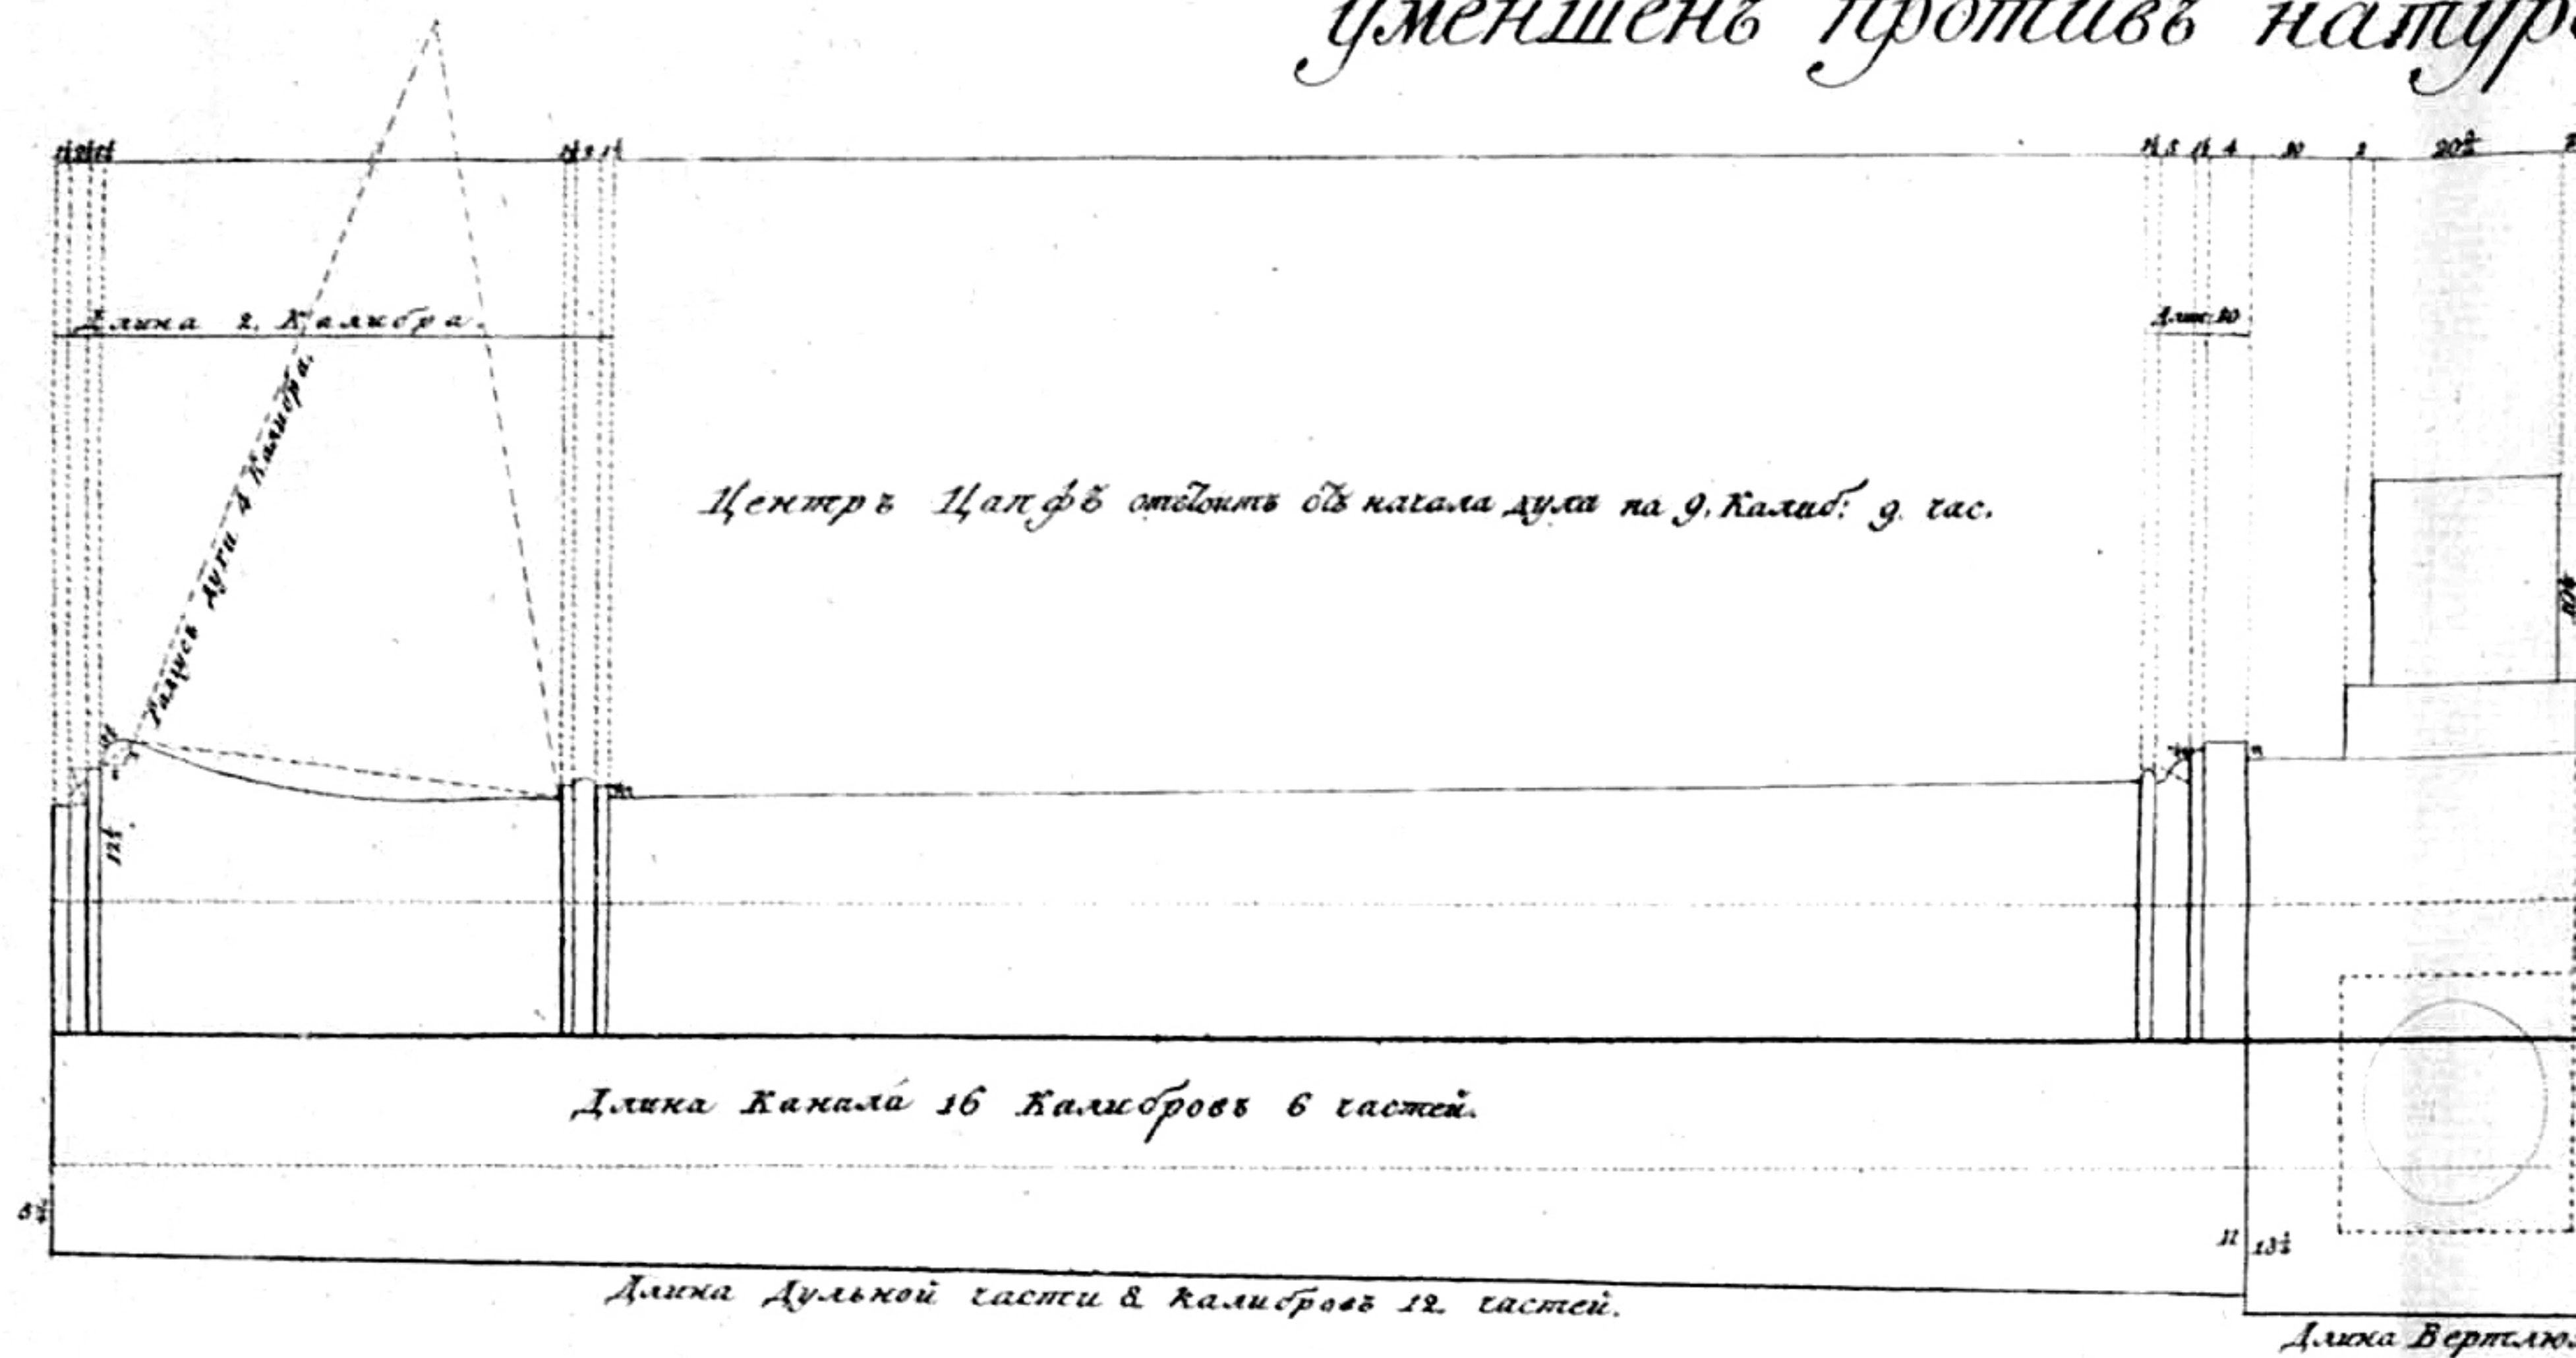 уменшенъ противъ натур
4 10 2 20½
Длина 2. Калибра.
Длин: 10
Радиусъ дуги 4 Калибра.
Центръ Цапфъ отстоитъ отъ начала дула на 9. Калиб: 9. час.
12½
Длина Канала 16 Калибровъ 6 частей.
11 13½
Длина Дульной части 8 калибровъ 12. частей.
Длина Вертлю